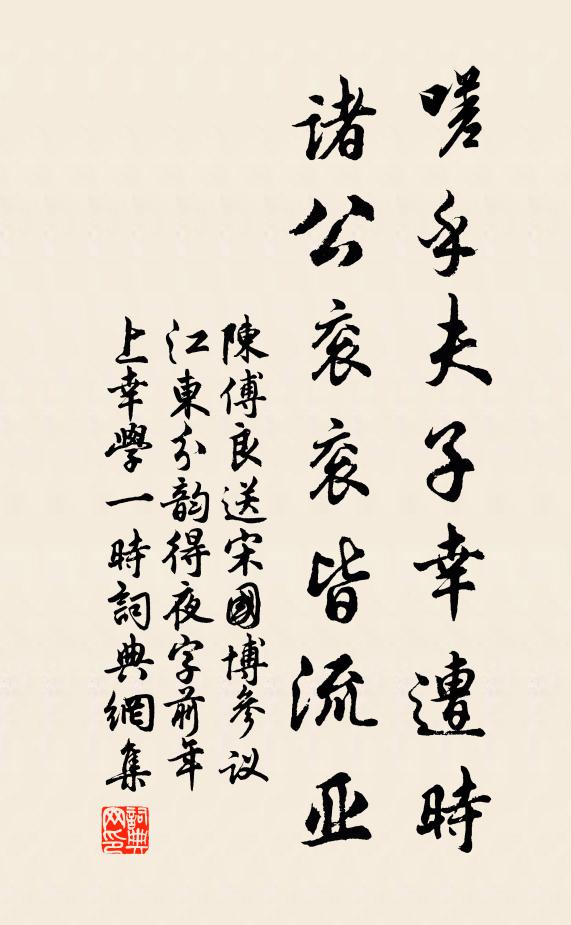 嗟乎夫子幸遭時
諸公衮衮皆流亚
陳傅良送宋國博參议
江東分韵得夜字前年
上幸學一時詞典網集
詞典
网印